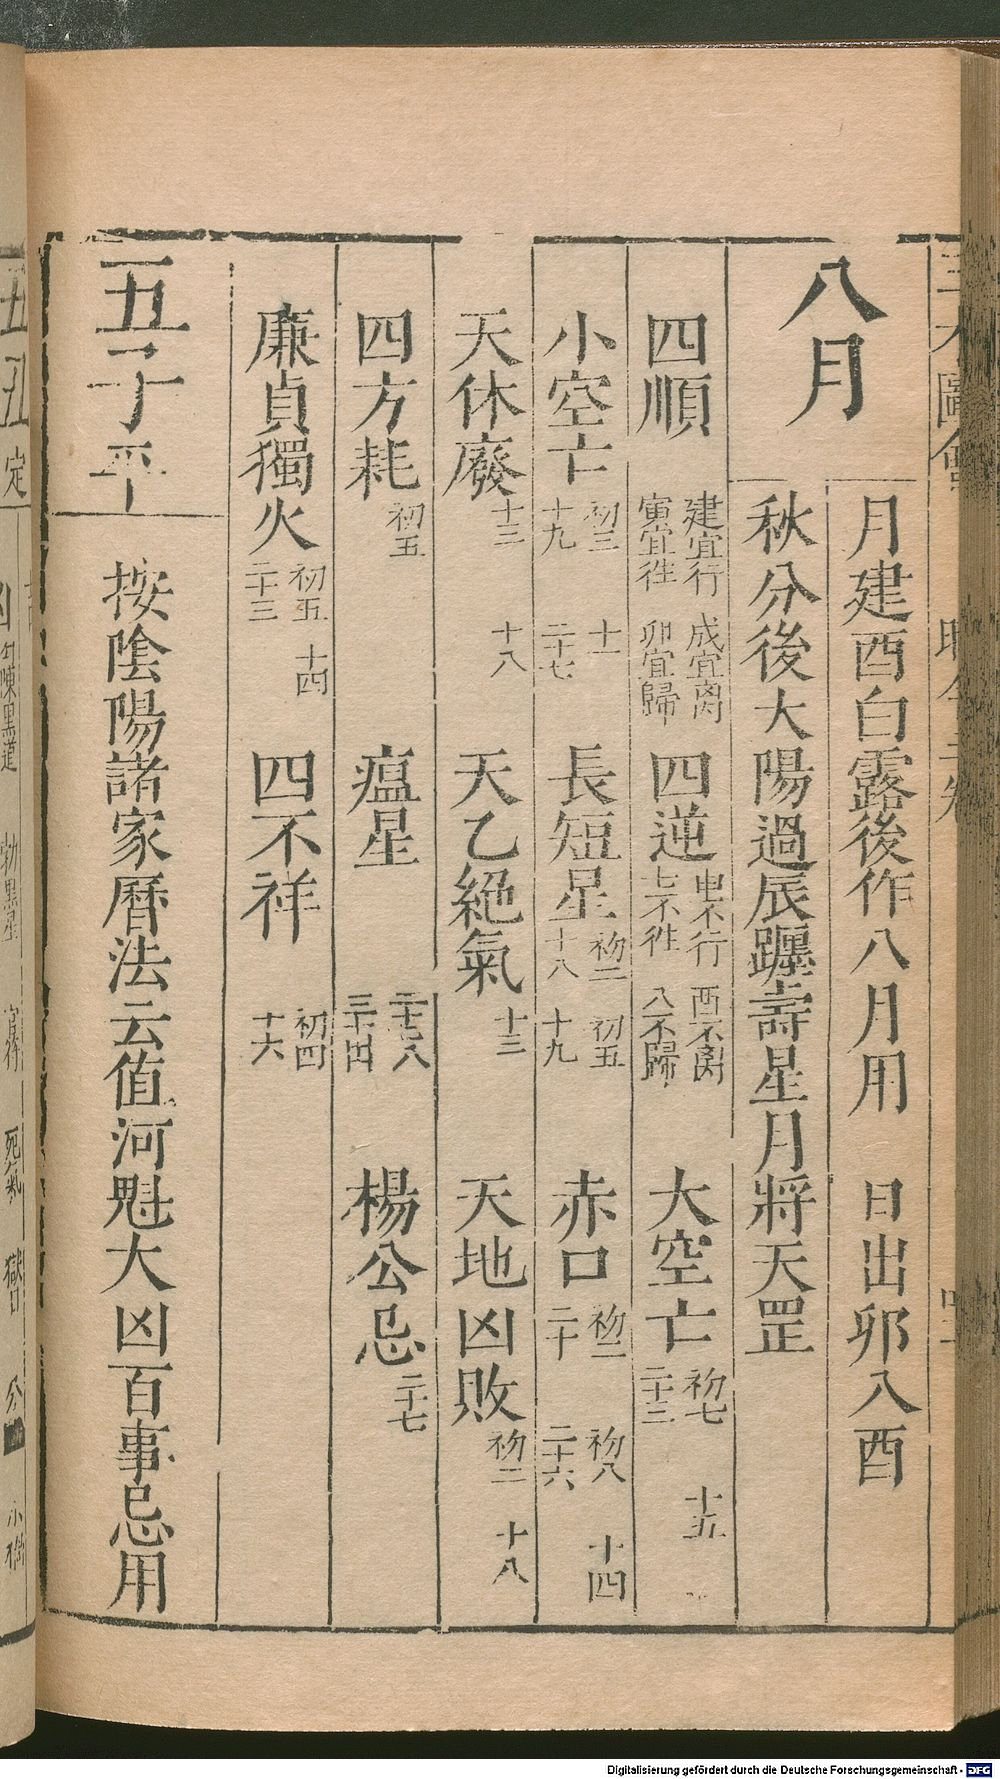 八月
月建酉白露後作八月用　日出卯入酉
秋分後大陽過辰躔壽星月將天罡
四順　建宜行　成宜离　寅宜徃　卯宜歸　四逆　申不行　酉不离　七不徃　八不歸　大空亡　初七　十五　二十三
小空亡　初三　十一　十九　二十七　長短星　初二　初五　十八　十九　赤口　初二　初八　十四　二十　二十六
天休廢　十三　十八　天乙絕氣　十三　天地凶敗　初二　十八
四方耗　初五　瘟星　楊公忌　二十七
廉貞獨火　初五　十四　二十三　四不祥　初四　十六
五子平
按陰陽諸家曆法云值河魁大凶百事忌用
Digitalisierung gefördert durch die Deutsche Forschungsgemeinschaft - DFG